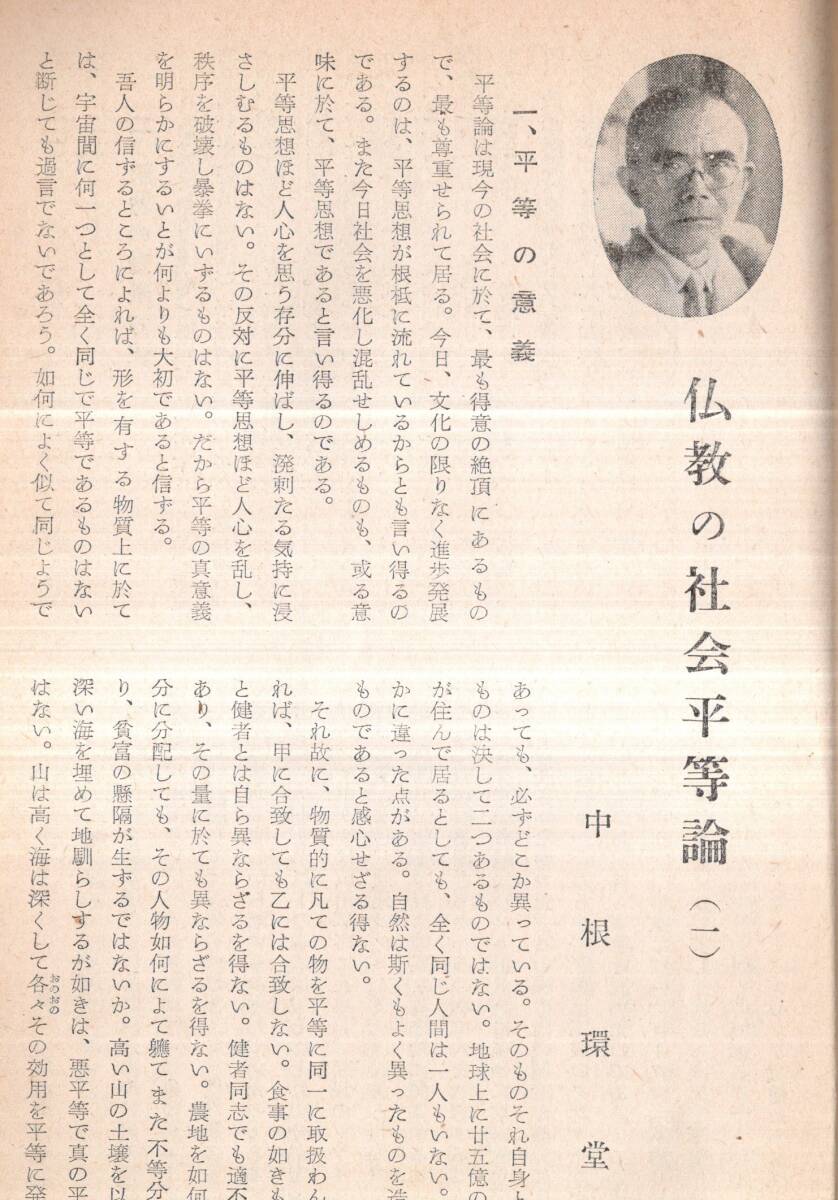 仏教の社会平等論(一)
中根環堂
一、平等の意義
平等論は現今の社会に於て、最も得意の絶頂にあるもの
で、最も尊重せられて居る。今日、文化の限りなく進歩発展
するのは、平等思想が根柢に流れているからとも言い得るの
である。また今日社会を悪化し混乱せしめるものも、或る意
味に於て、平等思想であると言い得るのである。
平等思想ほど人心を思う存分に伸ばし、溌剌たる気持に浸
さしむるものはない。その反対に平等思想ほど人心を乱し、
秩序を破壊し暴挙にいずるものはない。だから平等の真意義
を明らかにするいとが何よりも大初であると信ずる。
吾人の信ずるところによれば、形を有する物質上に於て
は、宇宙間に何一つとして全く同じで平等であるものはない
と断じても過言でないであろう。如何によく似て同じようで
あっても、必ずどこか異っている。そのものそれ自身と
ものは決して二つあるものではない。地球上に廿五億の
が住んで居るとしても、全く同じ人間は一人もいない。
かに違った点がある。自然は斯くもよく異ったものを造
ものであると感心せざる得ない。
それ故に、物質的に凡ての物を平等に同一に取扱わん
れば、甲に合致しても乙には合致しない。食事の如きも
と健者とは自ら異ならざるを得ない。健者同志でも適不
あり、その量に於ても異ならざるを得ない。農地を如何
分に分配しても、その人物如何によて軈てまた不等分
り、貧富の懸隔が生ずるではないか。高い山の土壌を以
深い海を埋めて地馴らしするが如きは、悪平等で真の平
はない。山は高く海は深くして各々おのおのその効用を平等に発